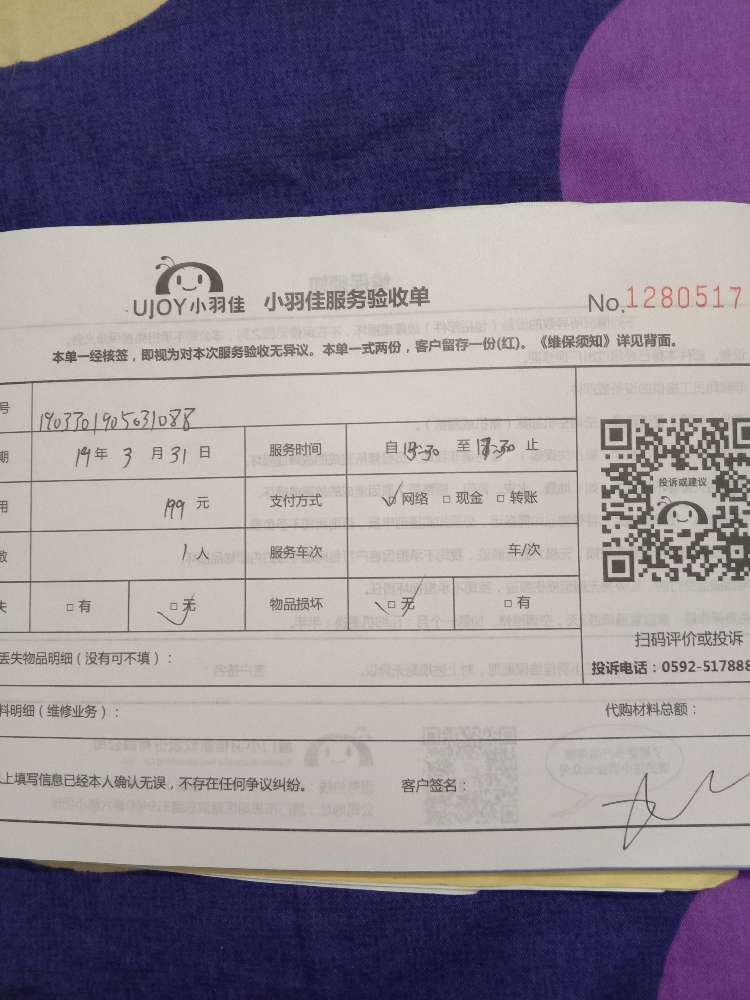 UJOY小羽佳 小羽佳服务验收单 No.1280517
本单一经核签，即视为对本次服务验收无异议。本单一式两份，客户留存一份(红)。《维保须知》详见背面。
号 1903301905031088
期 19年 3 月 31 日 服务时间 自 13:30 至 17:30 止
用 199 元 支付方式 □ 网络 □ 现金 □ 转账
数 1 人 服务车次 车/次
失 □ 有 □ 无 物品损坏 □ 无 □ 有
投诉或建议
扫码评价或投诉
投诉电话：0592-517888
丢失物品明细（没有可不填）：
料明细（维修业务）： 代购材料总额：
上填写信息已经本人确认无误，不存在任何争议纠纷。 客户签名：